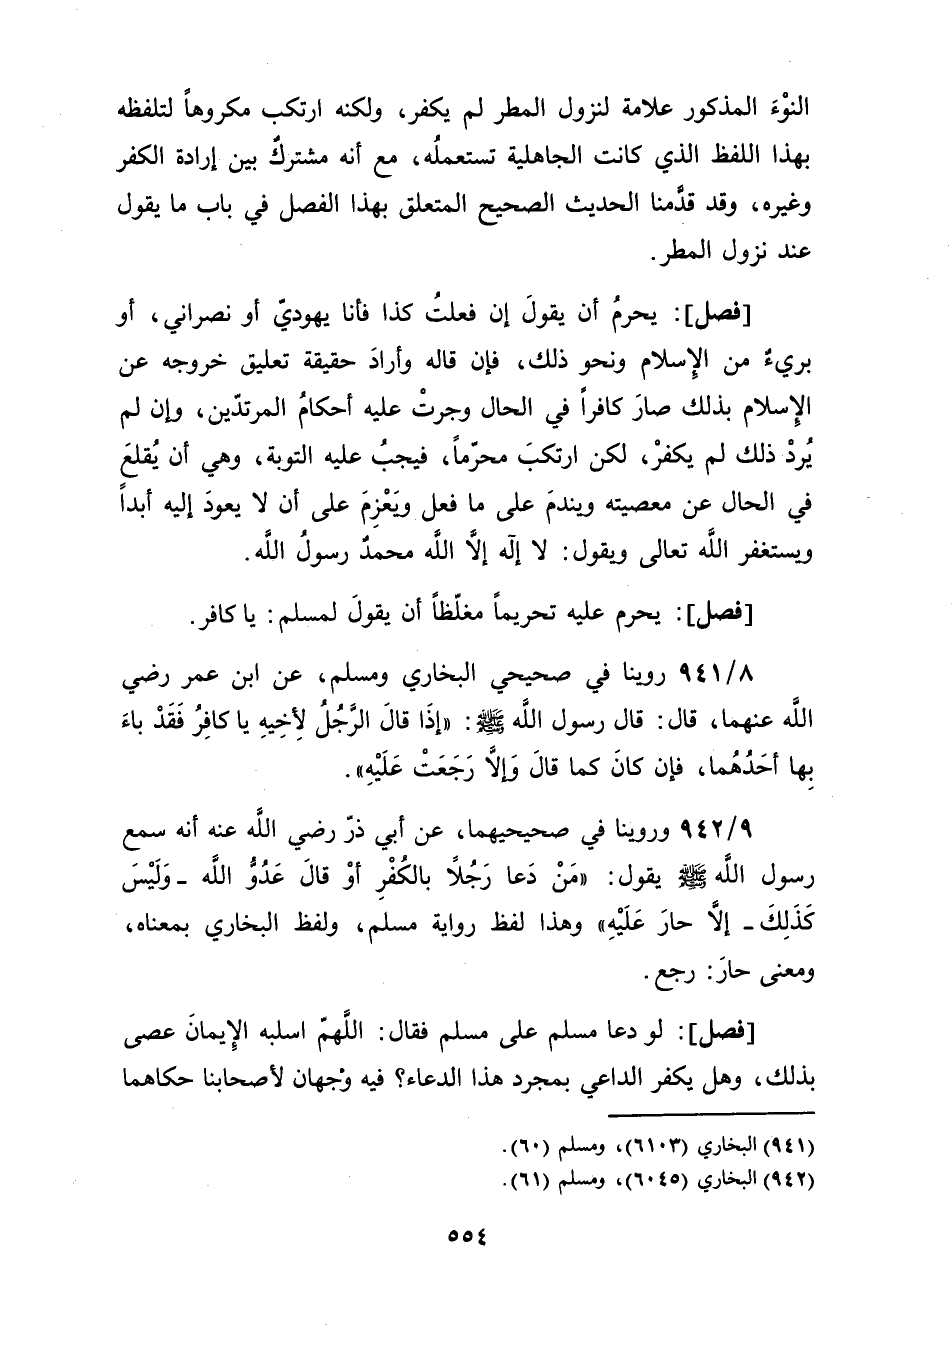 النوْءَ المذكور علامة لنزول المطر لم يكفر، ولكنه ارتكب مكروهاً لتلفظه
بهذا اللفظ الذي كانت الجاهلية تستعملُه، مع أنه مشتركٌ بين إرادة الكفر
وغيره، وقد قدَّمنا الحديث الصحيح المتعلق بهذا الفصل في باب ما يقول
عند نزول المطر.
[فصل]: يحرمُ أن يقولَ إن فعلتُ كذا فأنا يهوديّ أو نصراني، أو
بريءٌ من الإِسلام ونحو ذلك، فإن قاله وأرادَ حقيقة تعليق خروجه عن
الإِسلام بذلك صارَ كافراً في الحال وجرتْ عليه أحكامُ المرتدّين، وإن لم
يُردْ ذلك لم يكفرْ، لكن ارتكبَ محرّماً، فيجبُ عليه التوبة، وهي أن يُقلعَ
في الحال عن معصيته ويندمَ على ما فعل ويَعْزِمَ على أن لا يعودَ إليه أبداً
ويستغفر اللَّه تعالى ويقول: لا إلَه إلَّا اللَّه محمدٌ رسولُ اللَّه.
[فصل]: يحرم عليه تحريماً مغلّظاً أن يقولَ لمسلم: يا كافر.
٩٤١/٨ روينا في صحيحي البخاري ومسلم، عن ابن عمر رضي
اللَّه عنهما، قال: قال رسول اللَّه ﷺ: «إذَا قالَ الرَّجُلُ لأخِيهِ يا كافِرُ فَقَدْ باءَ
بِها أحَدُهُما، فإن كانَ كما قالَ وَإلَّا رَجَعَتْ عَلَيْهِ».
٩٤٢/٩ وروينا في صحيحيهما، عن أبي ذرّ رضي اللَّه عنه أنه سمع
رسول اللَّه ﷺ يقول: «مَنْ دَعا رَجُلًا بالكُفْرِ أوْ قالَ عَدُوُّ اللَّه ـ وَلَيْسَ
كَذَلِكَ ـ إلَّا حارَ عَلَيْهِ» وهذا لفظ رواية مسلم، ولفظ البخاري بمعناه،
ومعنى حارَ: رجع.
[فصل]: لو دعا مسلم على مسلم فقال: اللَّهمّ اسلبه الإِيمانَ عصى
بذلك، وهل يكفر الداعي بمجرد هذا الدعاء؟ فيه وجْهان لأصحابنا حكاهما
(٩٤١) البخاري (٦١٠٣)، ومسلم (٦٠).
(٩٤٢) البخاري (٦٠٤٥)، ومسلم (٦١).
٥٥٤